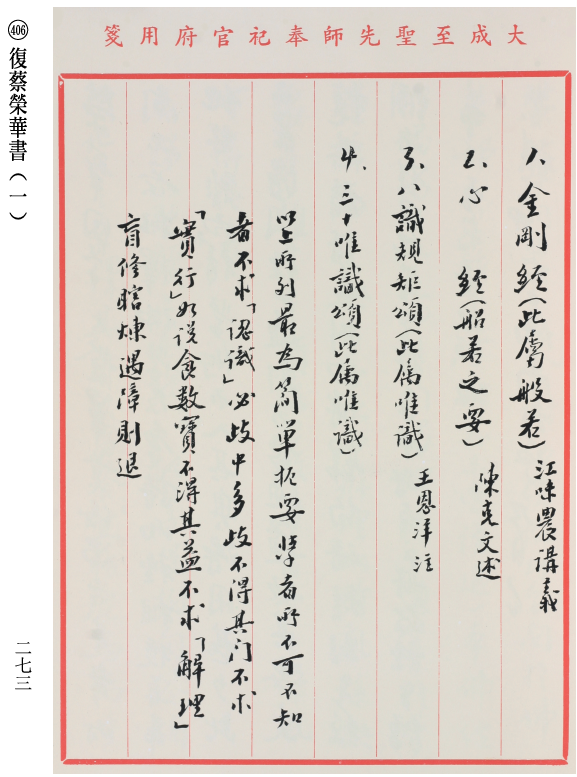 大成至聖先師奉祀官府用箋
1、金剛經(此屬般若)江味農講義
2、心 經(般若之要)陳克文述
3、八識規矩頌(此属唯識)王恩洋注
4、三十唯識頌(此属唯識)
以上所列最為简單扼要學者所不可不知
者不求「認識」必歧中多歧不得其门不求
「實行」如说食數寶不得其益不求「解理」
盲修瞎煉遇障則退
406 復蔡榮華書(一)
二七三